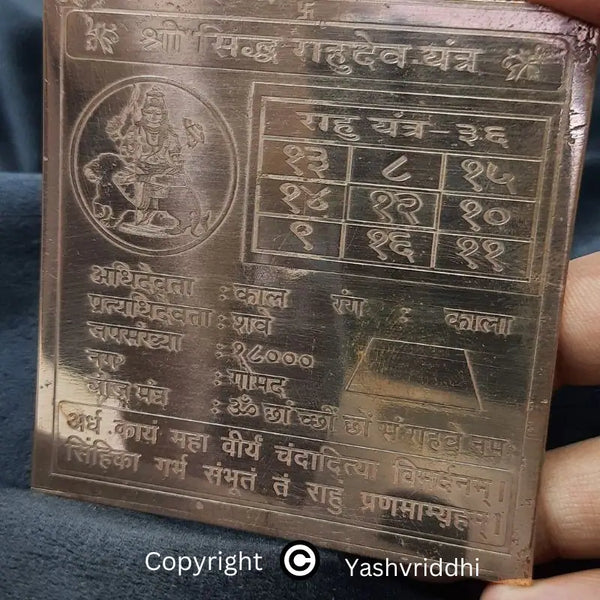 श्री सिद्ध राहुदेव यंत्र
राहु यंत्र - ३६
१३ ८ १५
१४ १२ १०
९ १६ ११
अधिदेवता : काल रंग : काला
प्रत्यधिदेवता : शवे
जपसंख्या : १८०००
नग : गोमद
बीज मंत्र : ॐ छां च्छीं छों सः राहवे नमः
अर्ध कायं महा वीर्यं चंदादित्या विमर्दनम्।
सिंहिका गर्भ संभूतं तं राहुं प्रणमाम्यहम्।
Copyright © Yashvriddhi